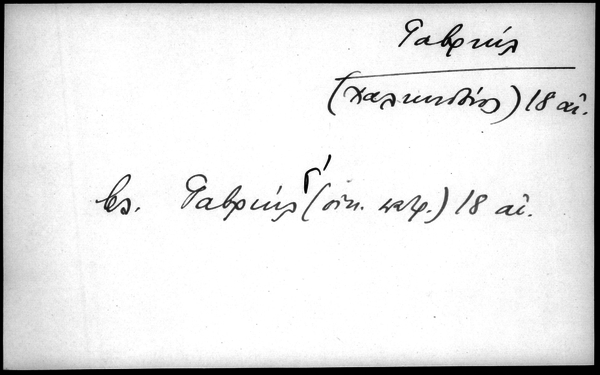 Γαβριήλ
(Χαλκηδόνος) 18 αἰ.
βλ. Γαβριήλ Γ' (οἰκ. πατρ.) 18 αἰ.